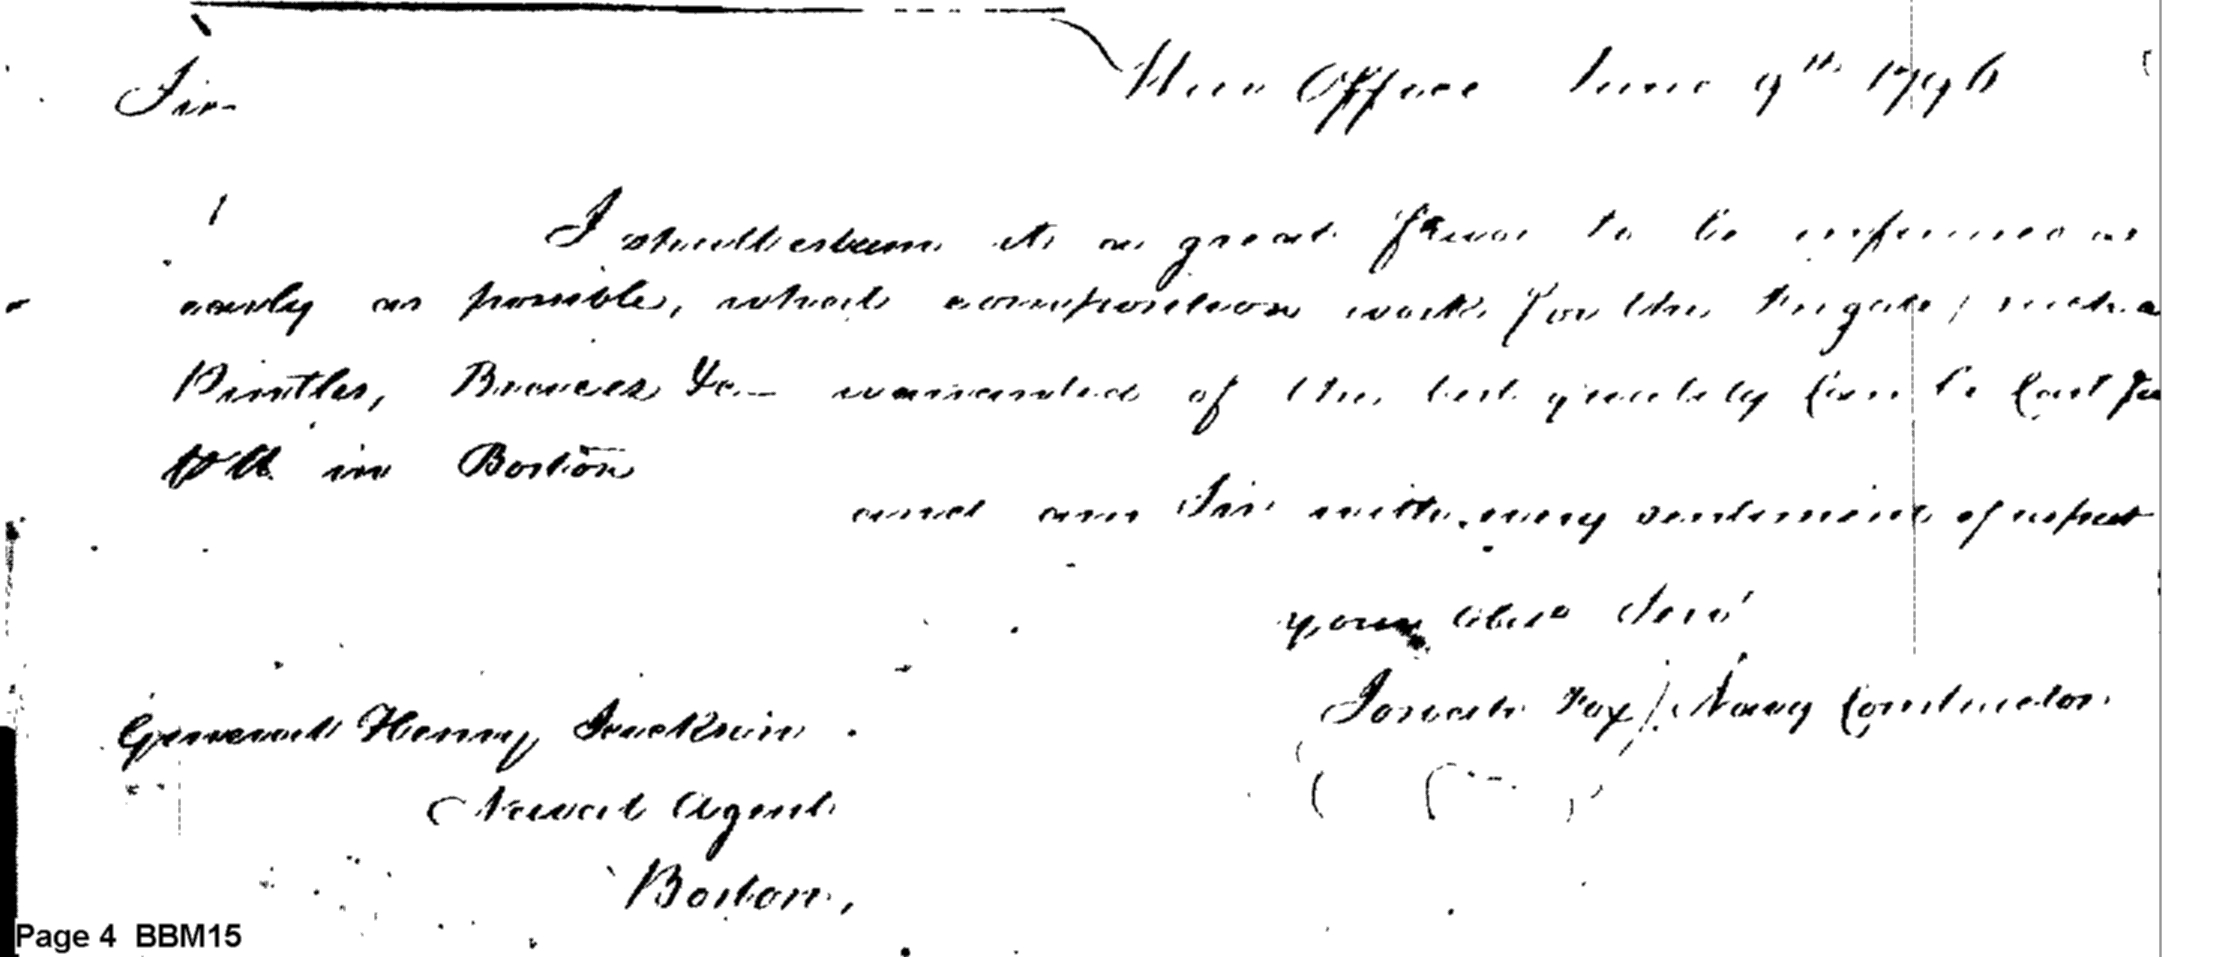 Sir
War Office June 9th 1796
I shall esteem it a great favor to be informed as
early as possible, what composition work for the Frigate, such a
Pintles, Braces &c— warranted of the best quality Can be Cast for
in Boston
and am Sir with every sentiment of respect
your Obed Serv
Josiah Fox / Navy Constructor
General Henry Jackson
Naval Agent
Boston,
Page 4 BBM15